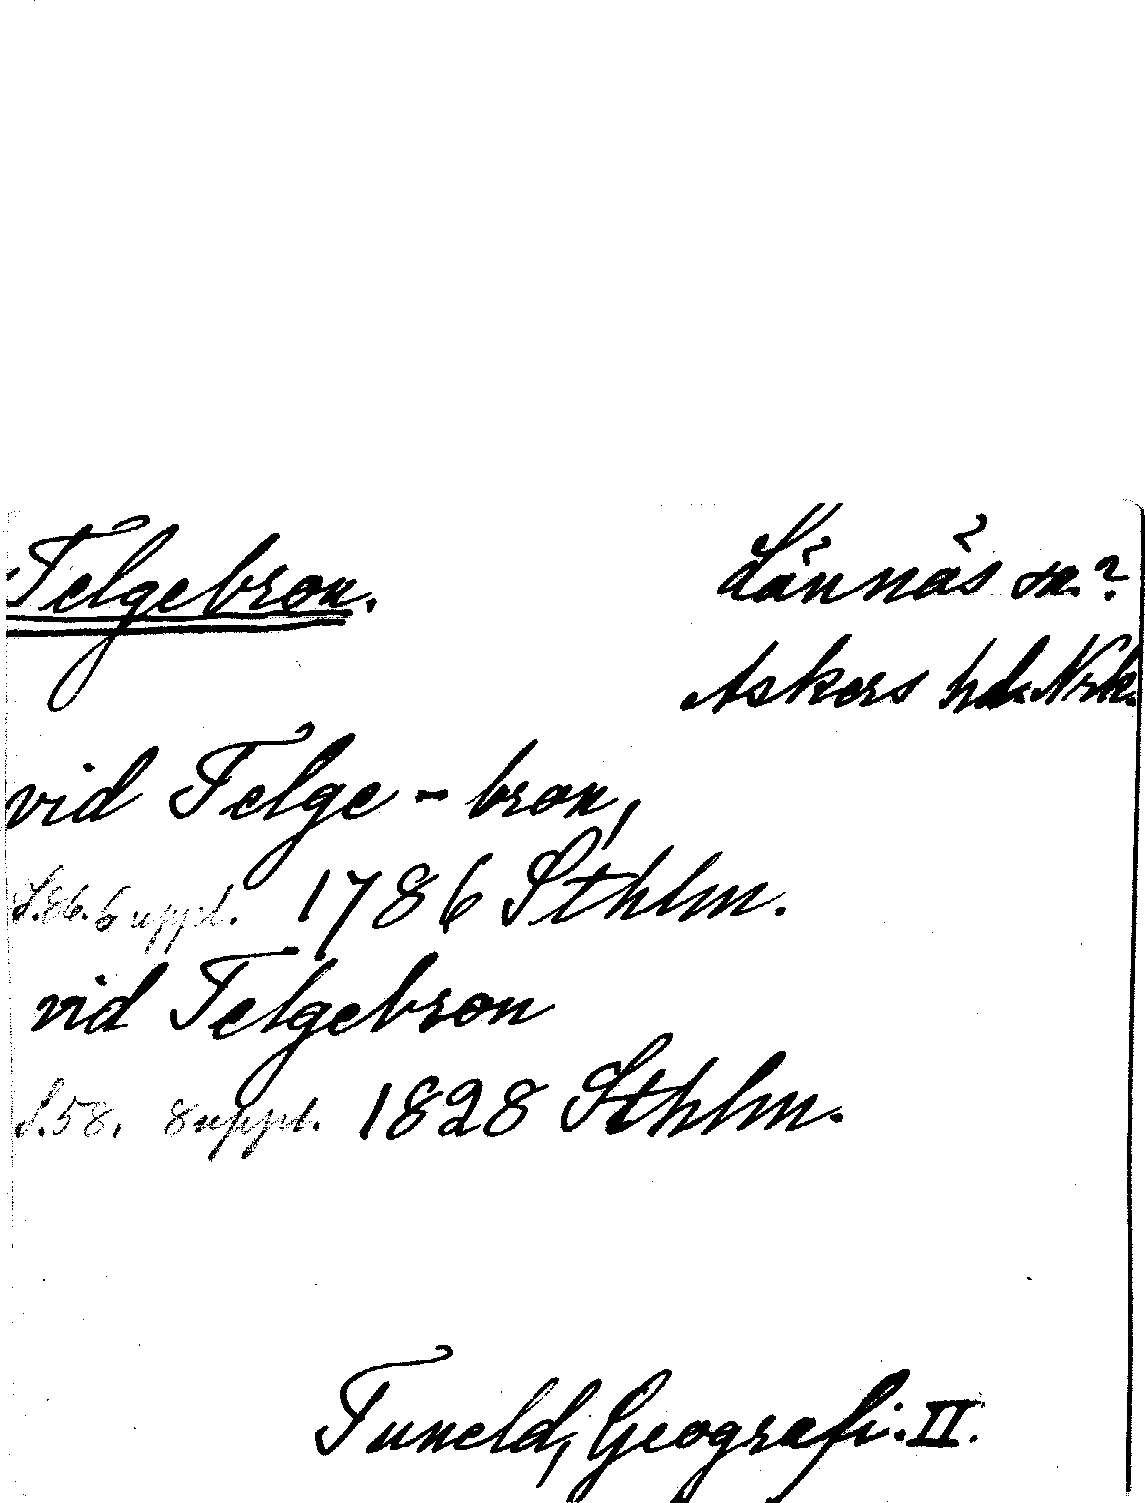 Telgebron. Lännäs sn?
Askers hd. Nrk.
vid Telge-bron,
S.86. 6 uppl. 1786 Sthlm.
vid Telgebron
S.58. 8 uppl. 1828 Sthlm.
Tuneld, Geografi. II.